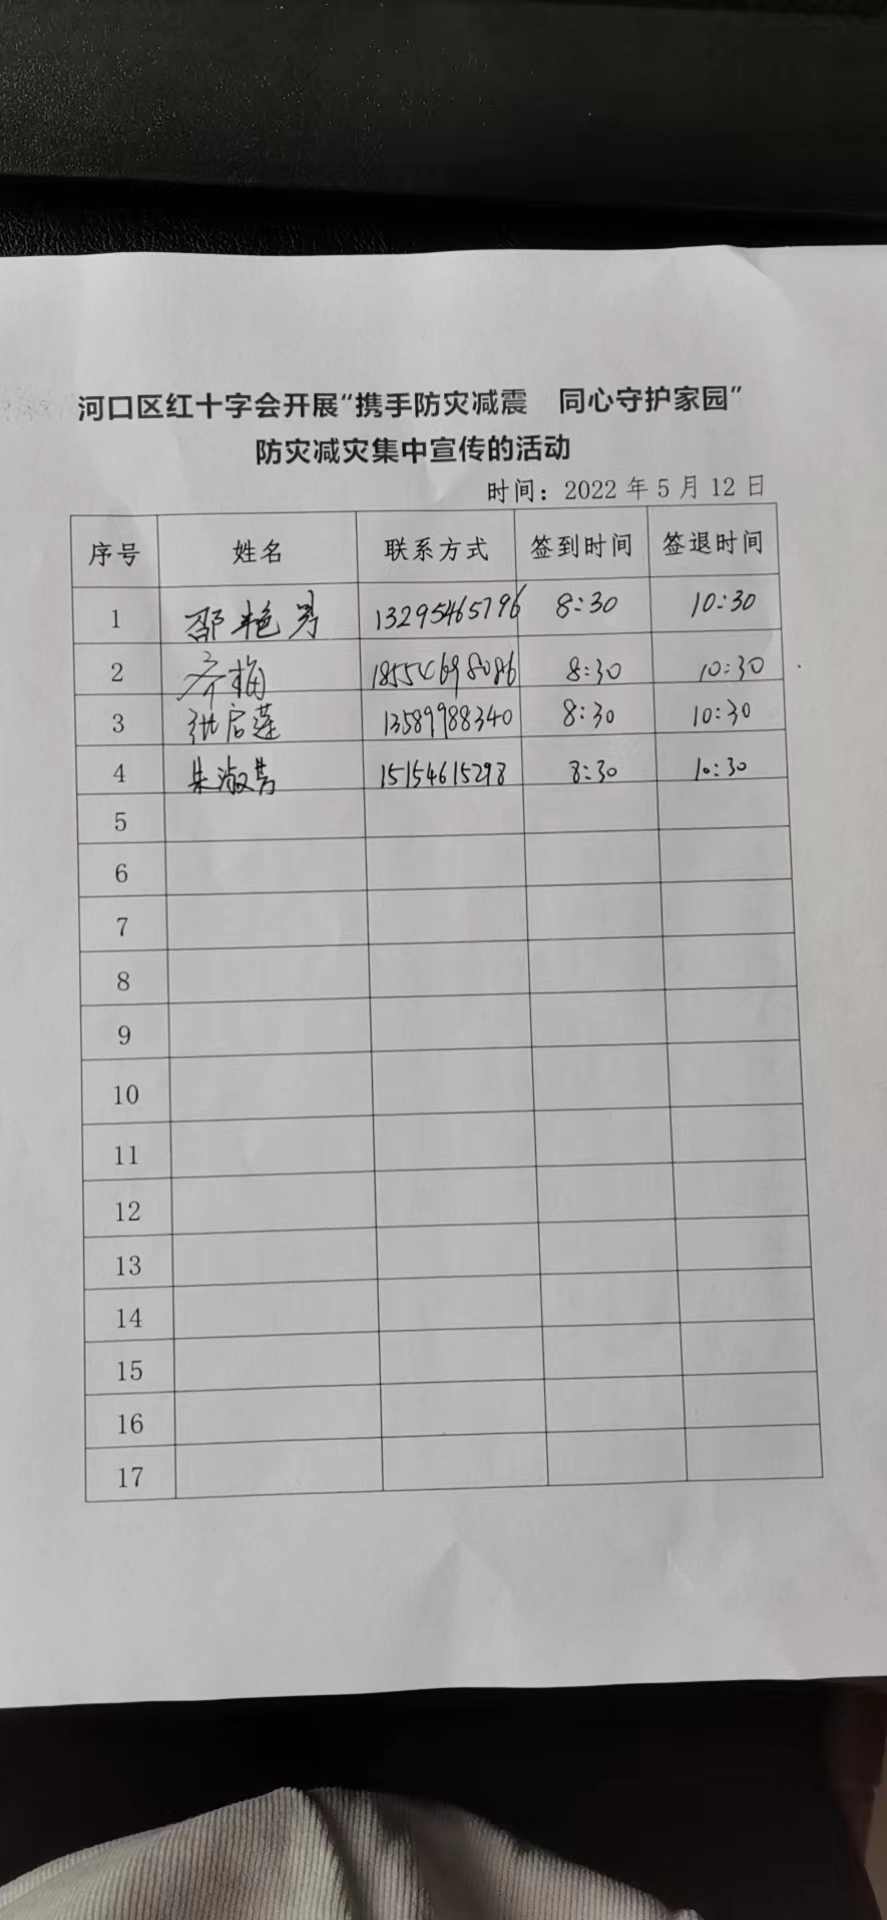 河口区红十字会开展“携手防灾减震 同心守护家园”
防灾减灾集中宣传的活动
时间：2022年5月12日
序号 姓名 联系方式 签到时间 签退时间
1 邵艳男 13295465796 8:30 10:30
2 齐梅 8:30 10:30
3 张启莲 13589988340 8:30 10:30
4 朱淑 15154615298 8:30 10:30
5
6
7
8
9
10
11
12
13
14
15
16
17